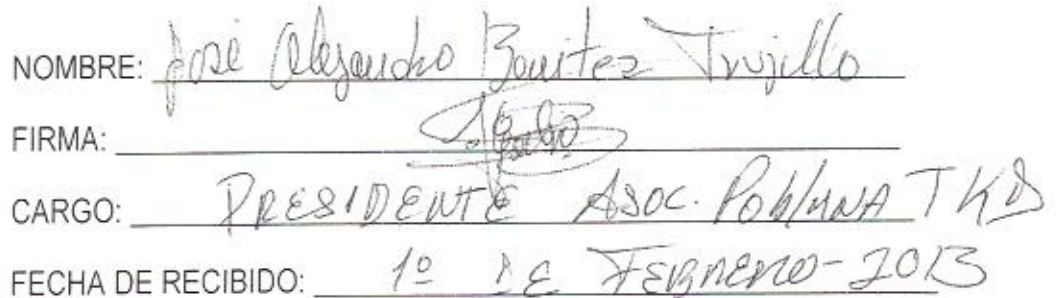 NOMBRE: José Alejandro Benitez Trujillo
FIRMA:
CARGO: PRESIDENTE ASOC. Poblana TKD
FECHA DE RECIBIDO: 1º DE FEBRERO-2013